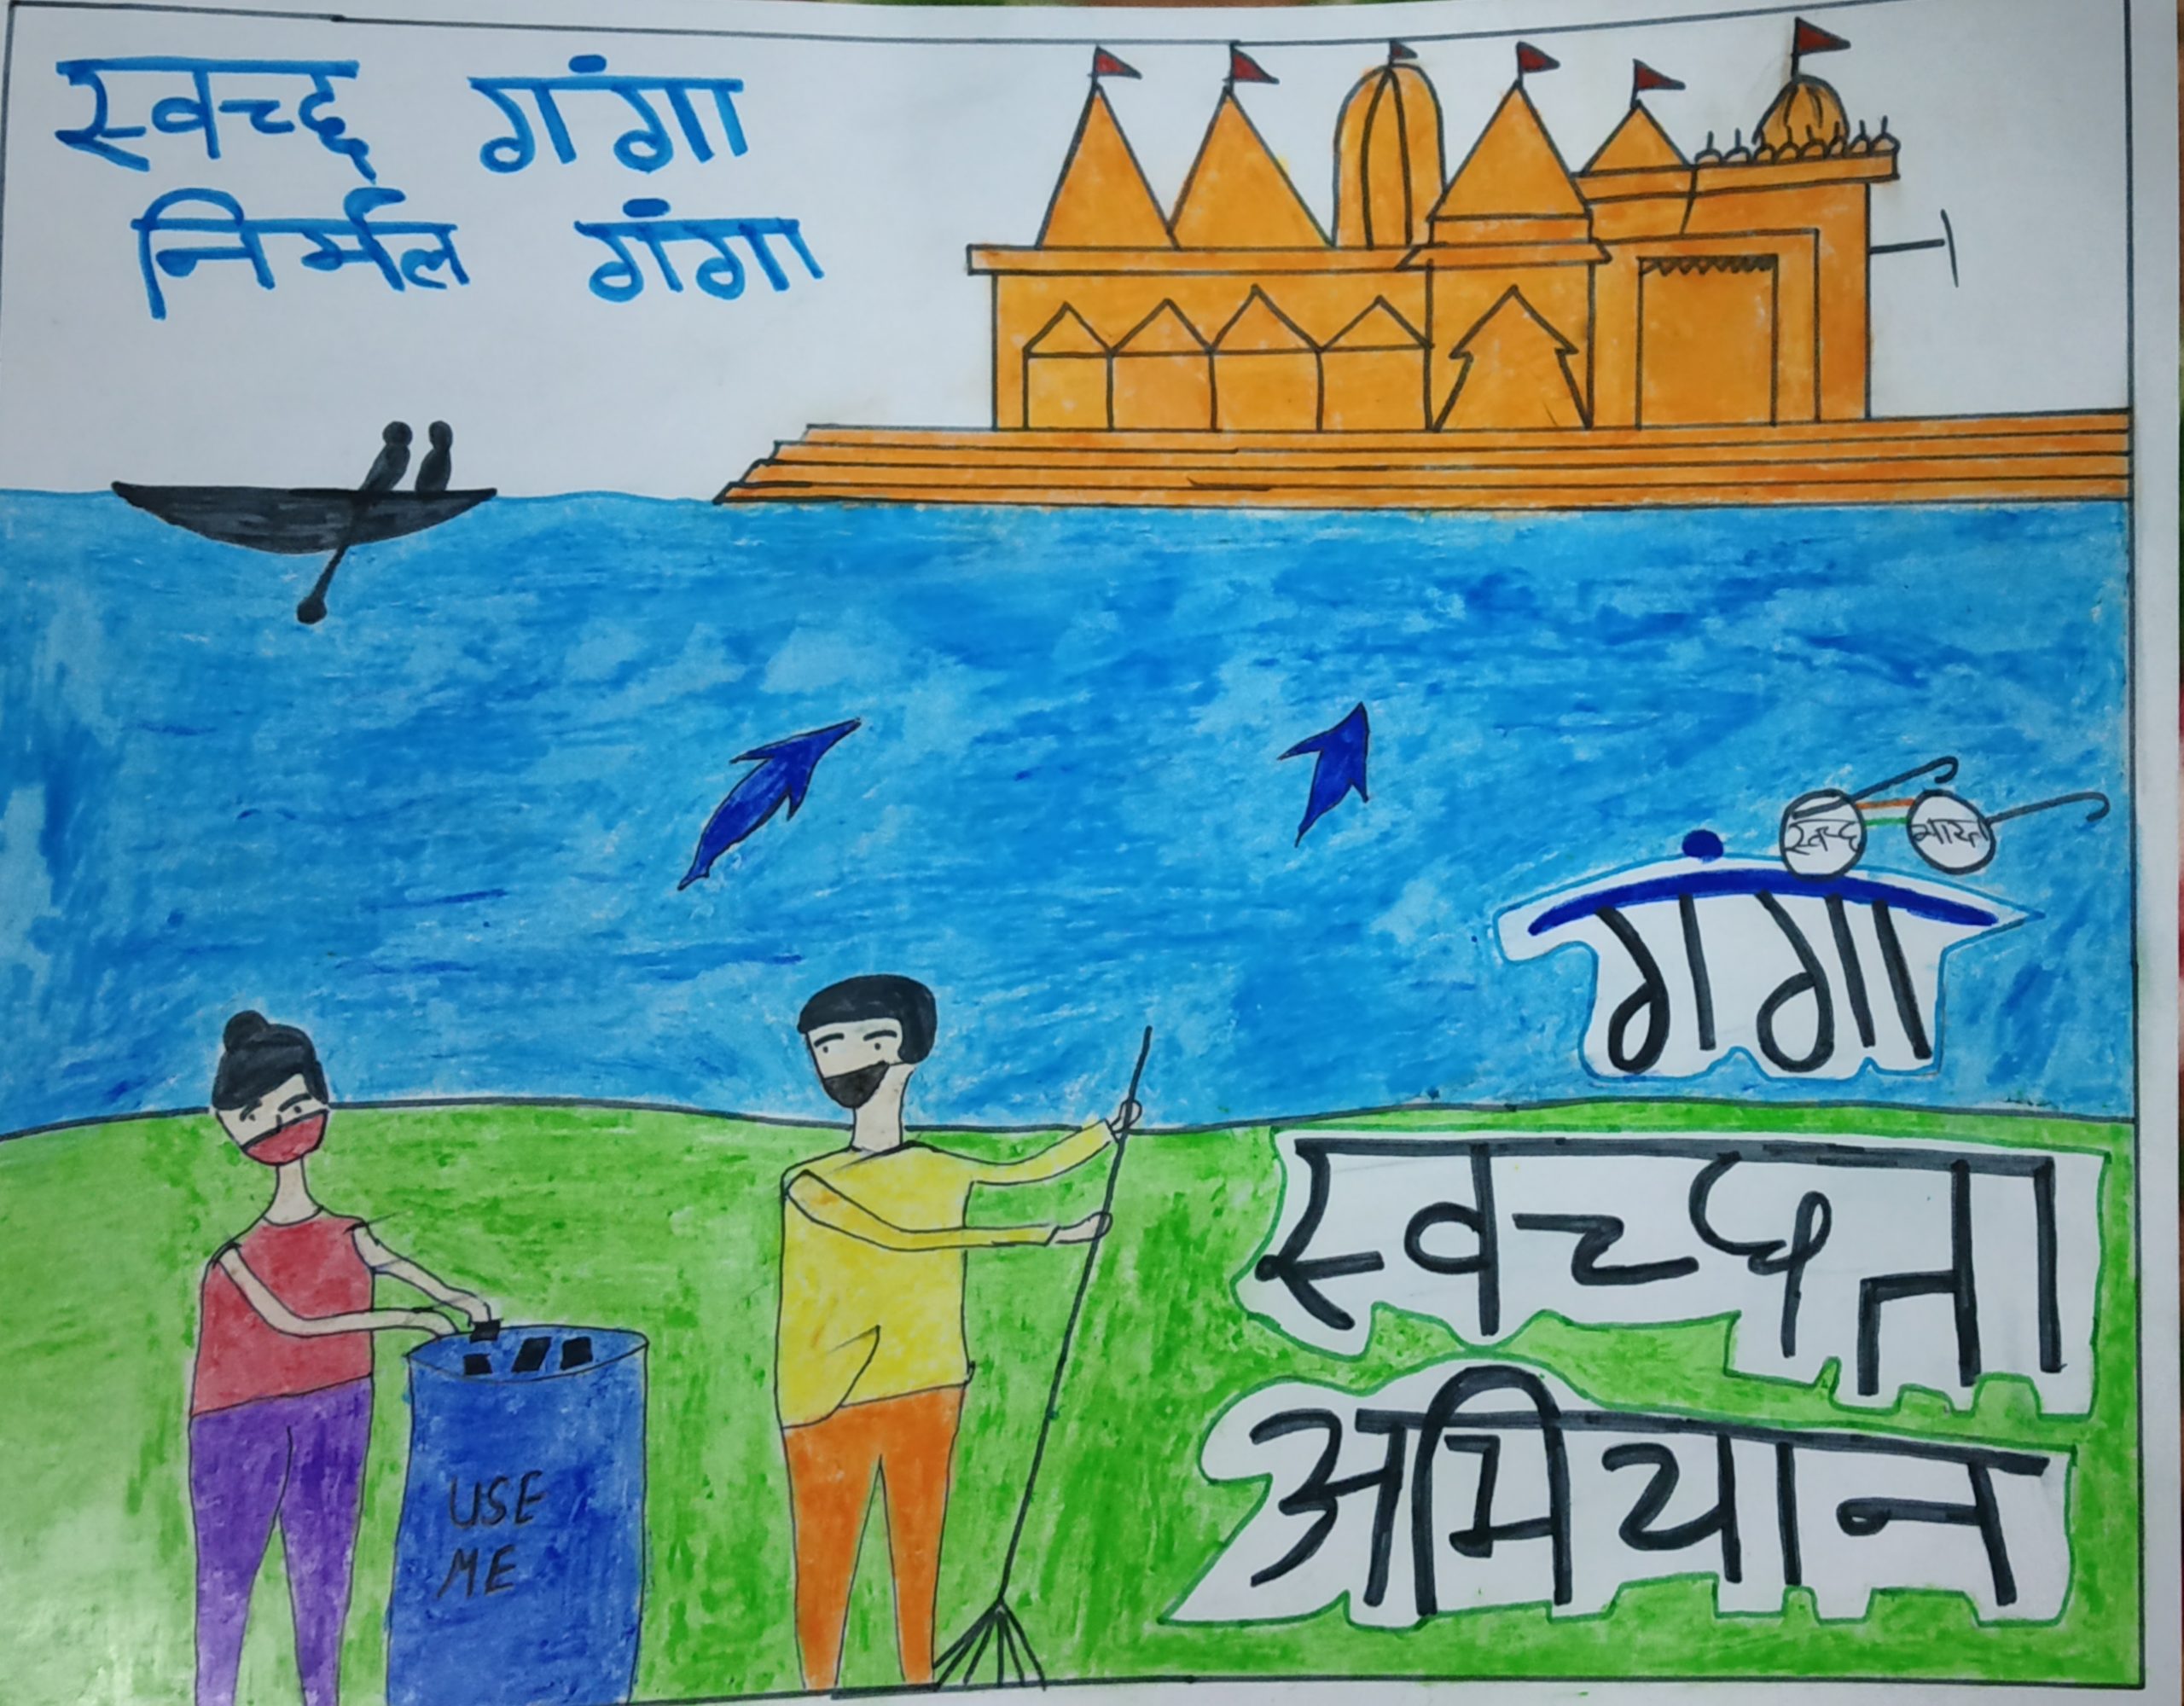 स्वच्छ गंगा
निर्मल गंगा
स्वच्छ भारत
गंगा
स्वच्छता
अभियान
USE
ME